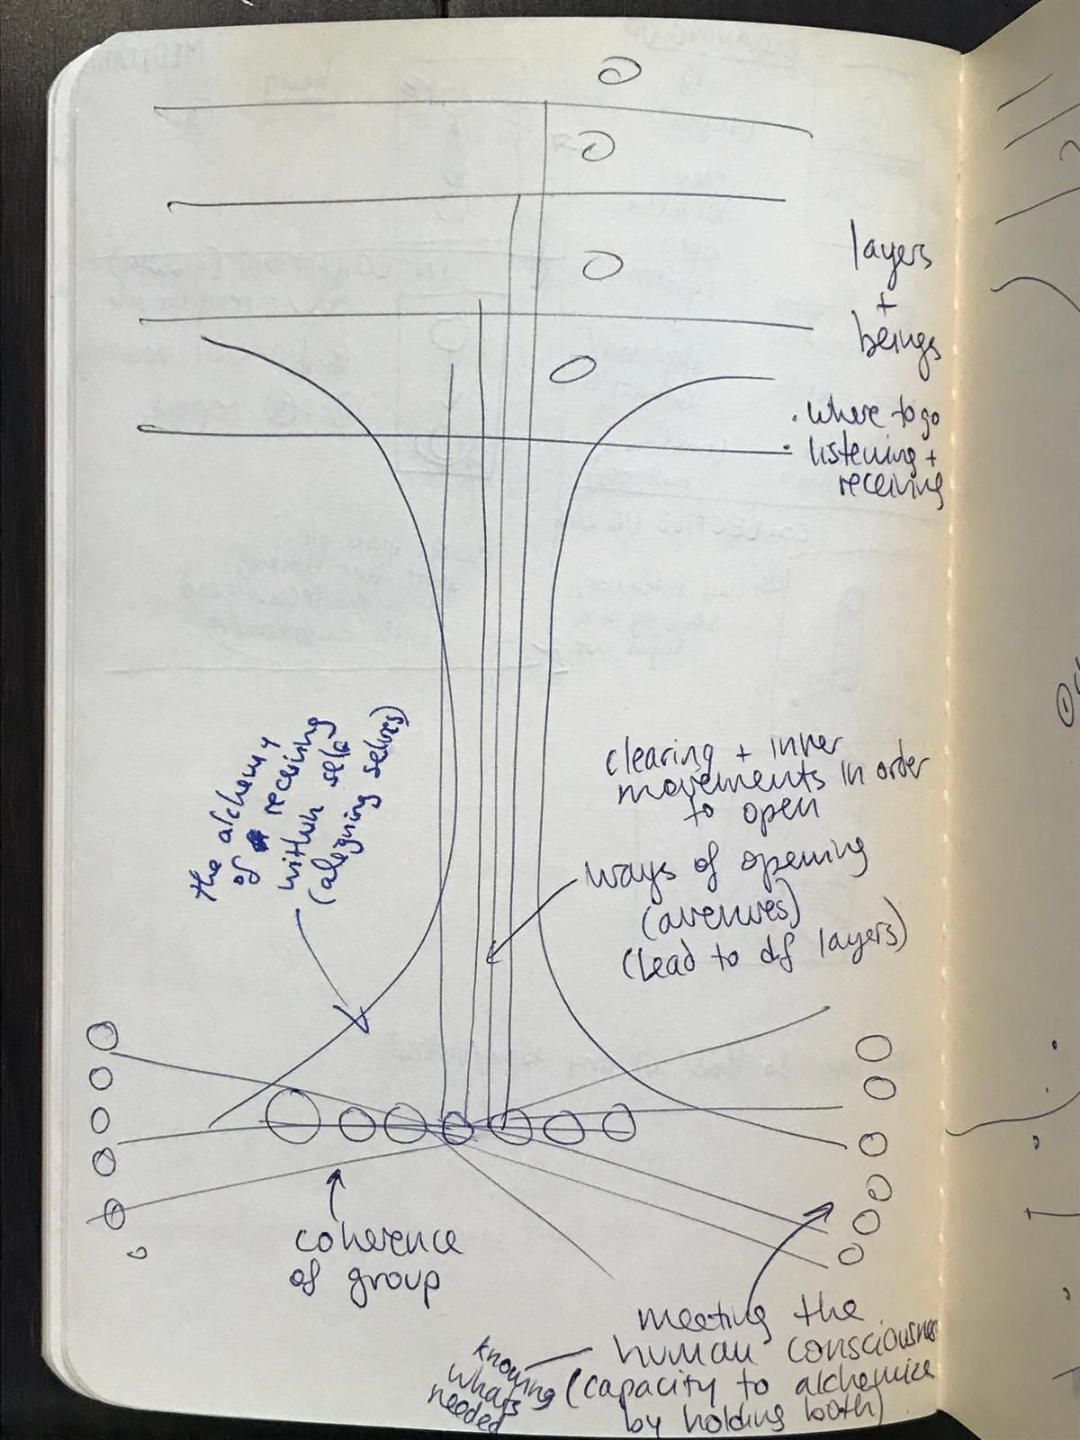 layers
+
beings
· where to go
· listening +
receiving
the alchemy
of receiving
within self
(aligning selves)
clearing + inner
movements in order
to open
ways of opening
(avenues)
(lead to df layers)
coherence
of group
meeting the
human consciousness
(capacity to alchemice
by holding both)
knowing
whats
needed